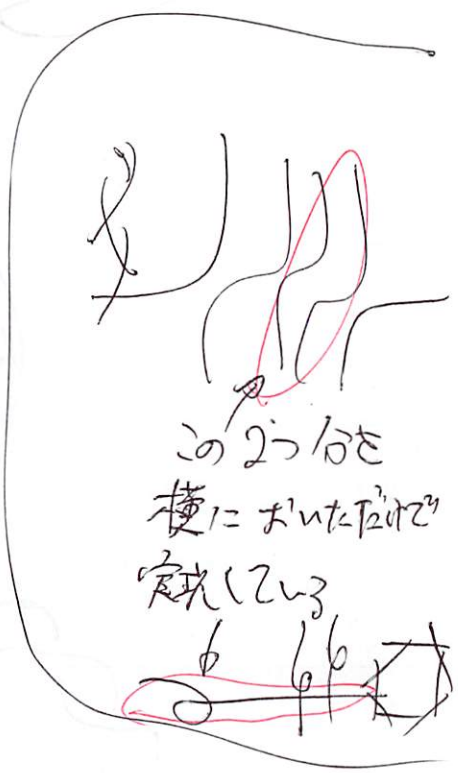 この2つ分を
横においただけで
実現している